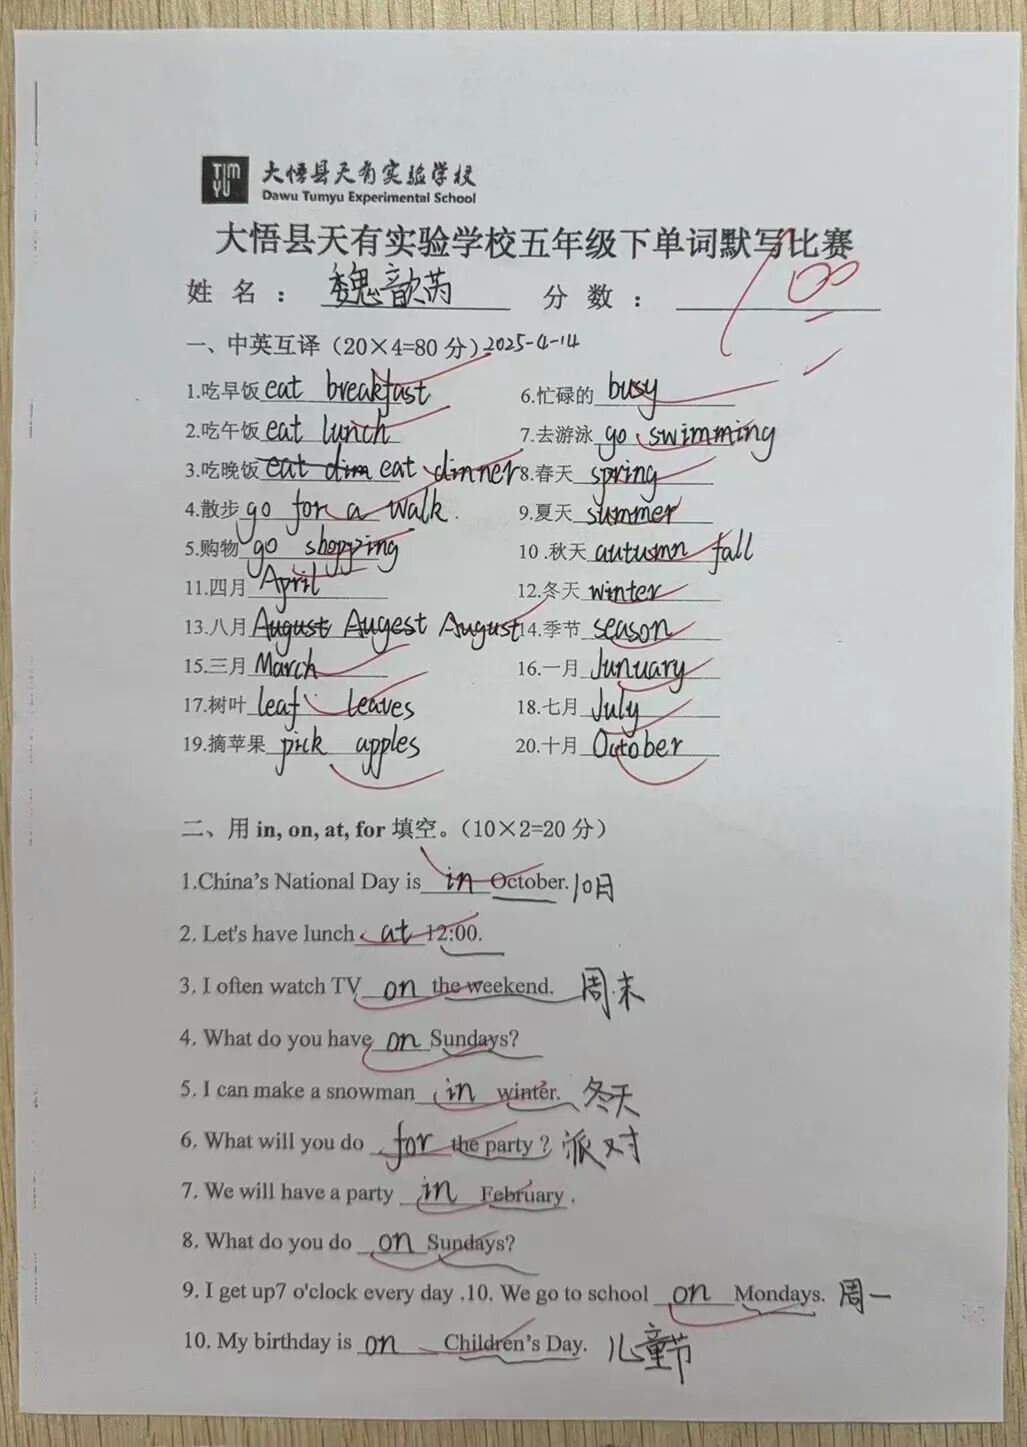 TIM YU 大悟县天有实验学校
Dawu Tumyu Experimental School
大悟县天有实验学校五年级下单词默写比赛
姓 名 ： 魏歆芮 分 数 ： 100
一、中英互译（20×4=80 分）2025-4-14
1.吃早饭 eat breakfast 6.忙碌的 busy
2.吃午饭 eat lunch 7.去游泳 go swimming
3.吃晚饭 eat dinn eat dinner 8.春天 spring
4.散步 go for a walk. 9.夏天 summer
5.购物 go shopping 10 .秋天 autumn fall
11.四月 April 12.冬天 winter
13.八月 August Augest August 14.季节 season
15.三月 March 16.一月 Junuary
17.树叶 leaf leaves 18.七月 July
19.摘苹果 pick apples 20.十月 October
二、用 in, on, at, for 填空。（10×2=20 分）
1.China's National Day is in October. 10月
2. Let's have lunch at 12:00.
3. I often watch TV on the weekend. 周末
4. What do you have on Sundays?
5. I can make a snowman in winter. 冬天
6. What will you do for the party ? 派对
7. We will have a party in February .
8. What do you do on Sundays?
9. I get up7 o'clock every day .10. We go to school on Mondays. 周一
10. My birthday is on Children's Day. 儿童节